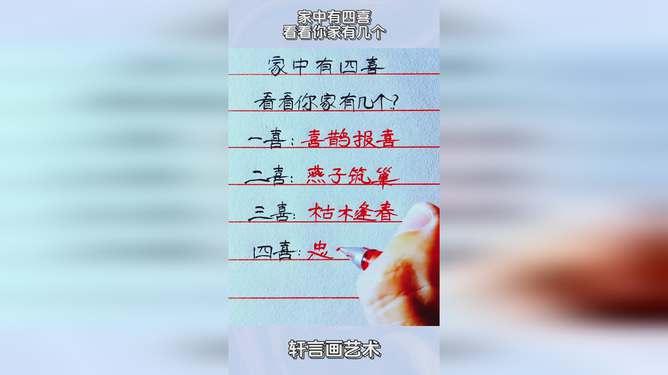 家中有四喜
看看你家有几个
家中有四喜
看看你家有几个?
一喜:喜鹊报喜
二喜:燕子筑巢
三喜:枯木逢春
四喜:忠
轩言画艺术